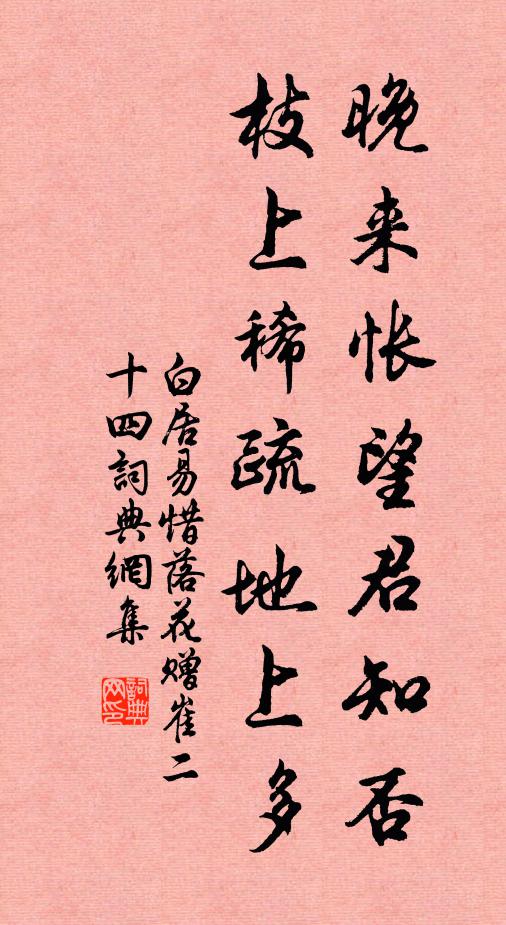 晚来怅望君知否
枝上稀疏地上多
白居易惜落花赠崔二
十四詞典網集
詞典网印